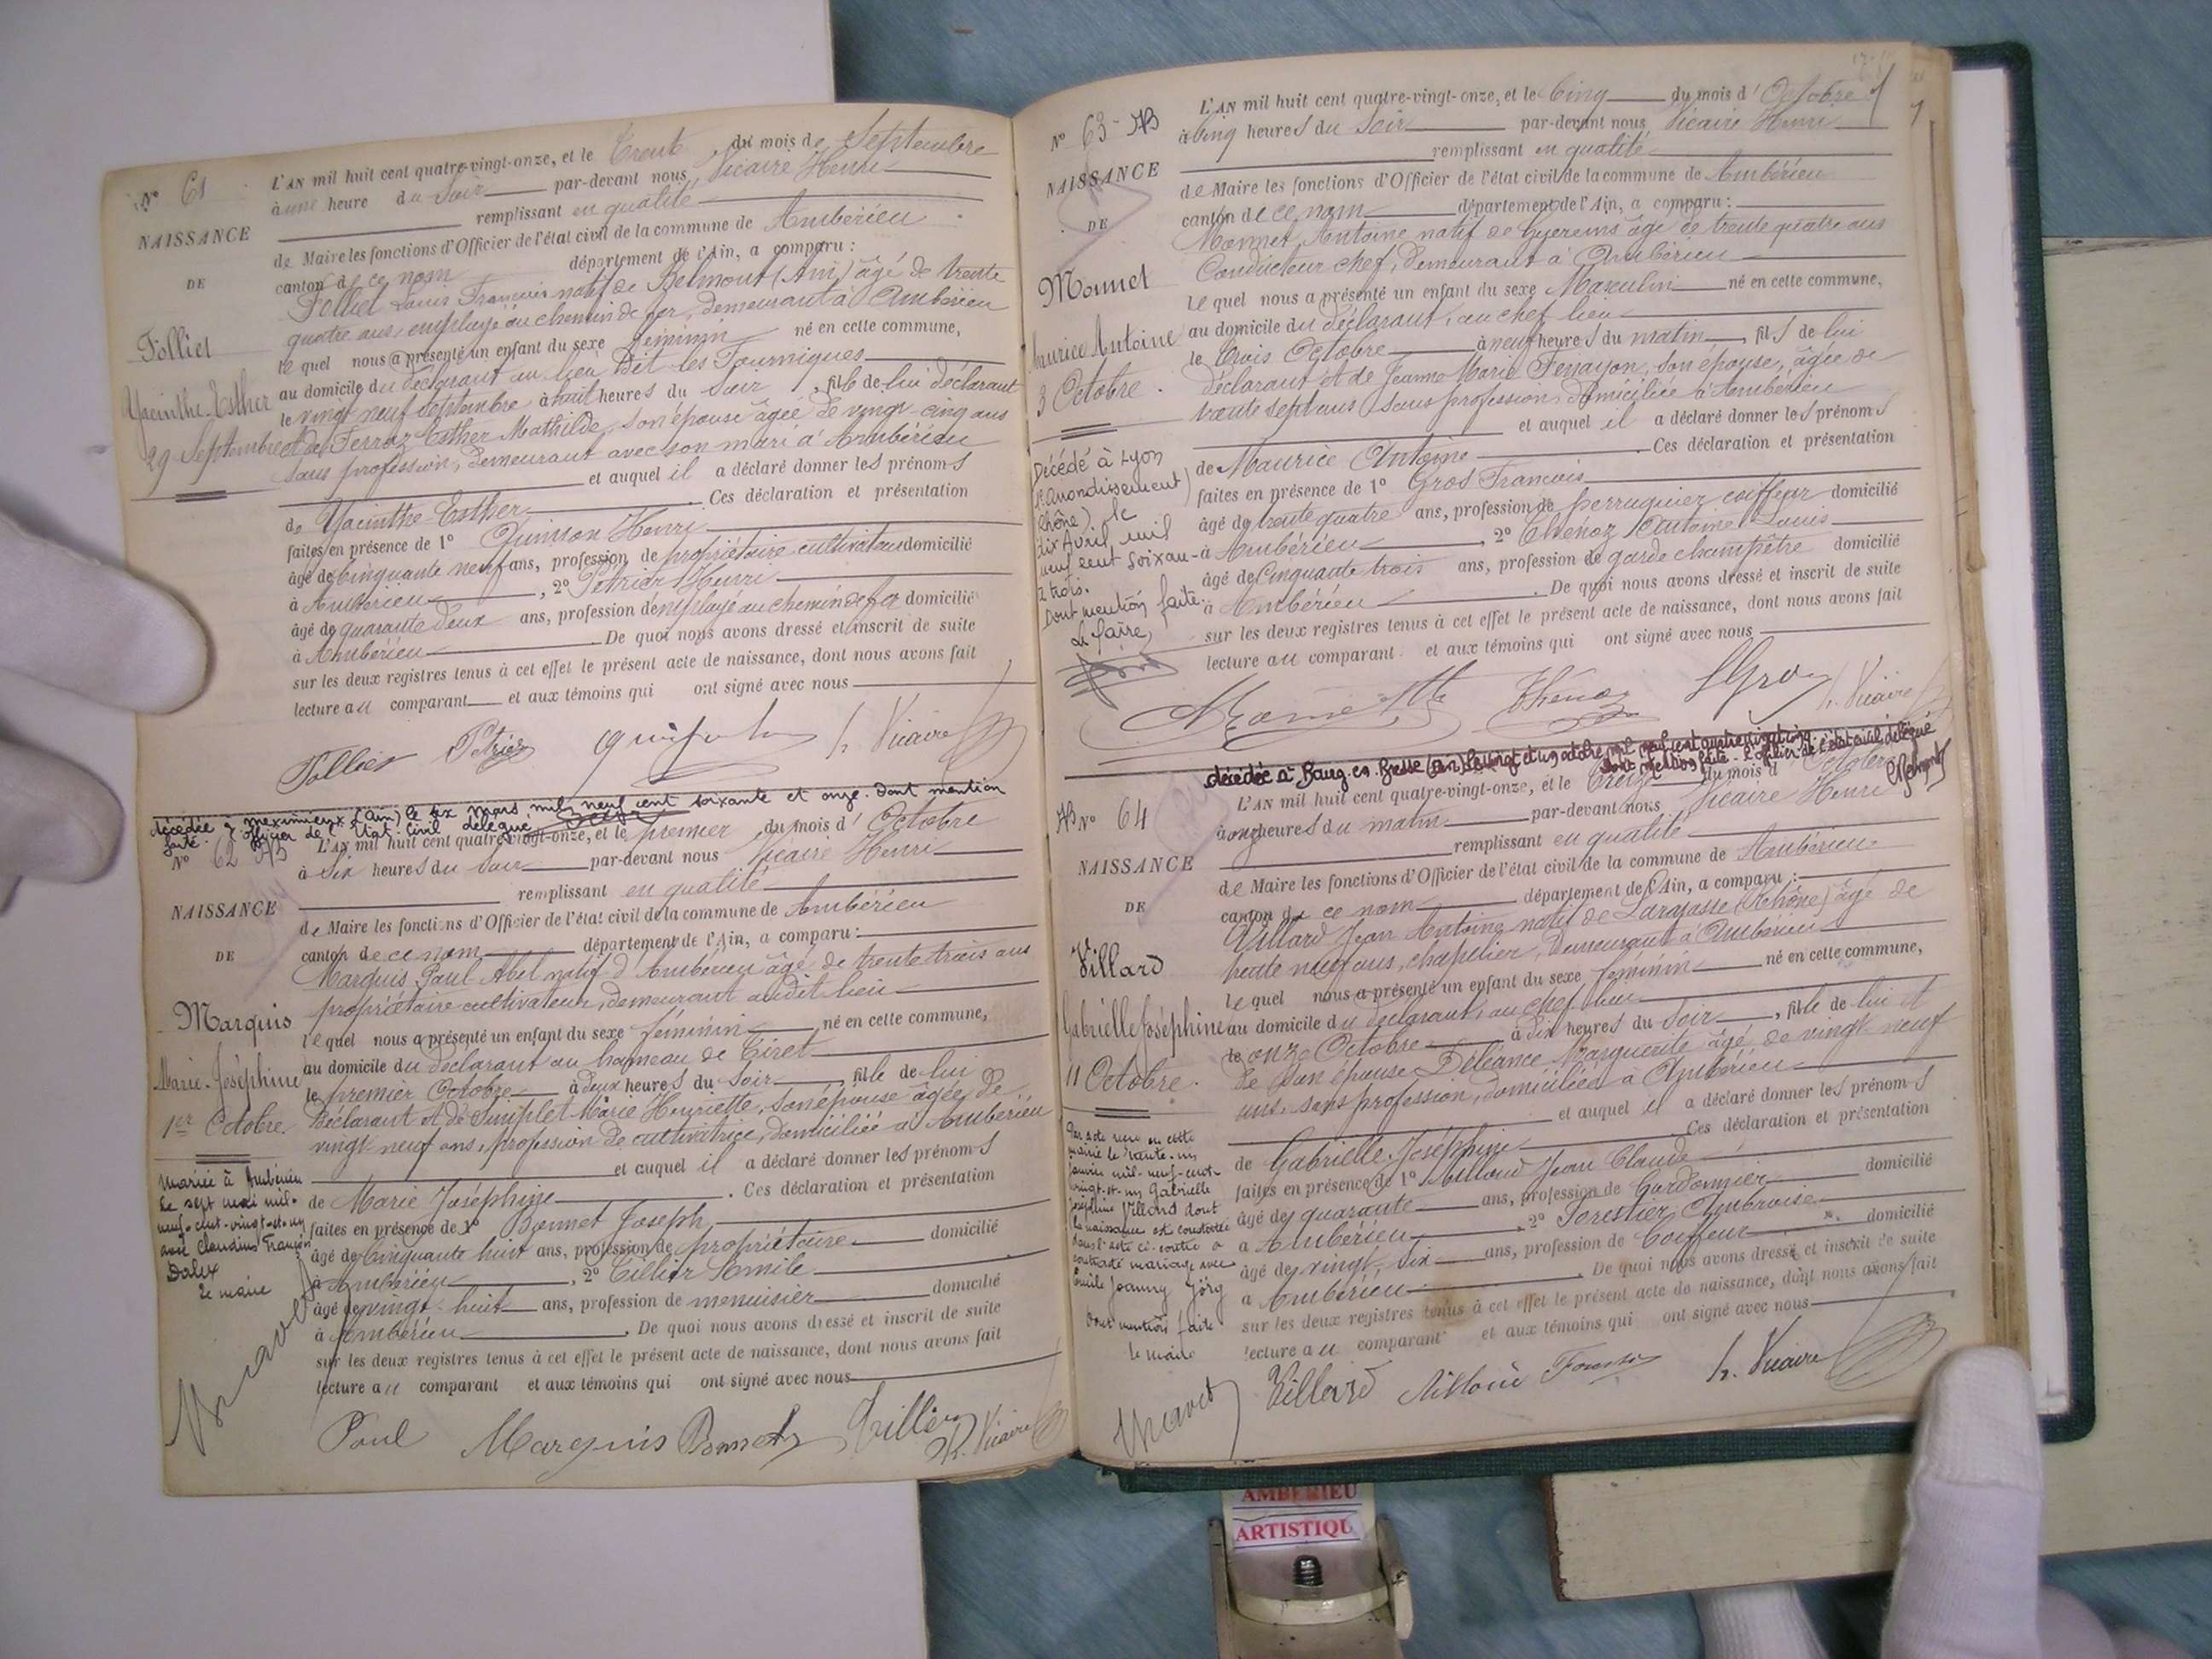 N° 61
NAISSANCE
DE
Folliet
Yacinthe-Esther
29 Septembre
L'AN mil huit cent quatre-vingt-onze, et le Trente du mois de Septembre
à une heure du Soir par-devant nous Vicaire Henri
remplissant en qualité
de Maire les fonctions d'Officier de l'état civil de la commune de Ambérieu
canton de ce nom département de l'Ain, a comparu :
Folliet Louis François natif de Belmont (Ain) âgé de trente
quatre ans, employé au chemin de fer, demeurant à Ambérieu
lequel nous a présenté un enfant du sexe féminin né en cette commune,
au domicile du déclarant au lieu dit les Fourniques
le vingt neuf septembre à huit heures du soir, fille de lui déclarant
et de Ferroz Esther Mathilde, son épouse âgée de vingt-cinq ans
sans profession, demeurant avec son mari à Ambérieu
et auquel il a déclaré donner les prénoms
de Yacinthe-Esther Ces déclaration et présentation
faites en présence de 1° Quinson Henri
âgé de Cinquante neuf ans, profession de propriétaire cultivateur domicilié
à Ambérieu, 2° Pétrier Henri
âgé de quarante deux ans, profession d'employé au chemin de fer domicilié
à Ambérieu De quoi nous avons dressé et inscrit de suite
sur les deux registres tenus à cet effet le présent acte de naissance, dont nous avons fait
lecture au comparant et aux témoins qui ont signé avec nous
Folliet Pétrier h. Vicaire
décédée à Meximieux (Ain) le six mars mil neuf cent soixante et onze. Dont mention
faite. l'officier de l'Etat-Civil délégué
N° 62 AB
NAISSANCE
DE
Marquis
Marie-Joséphine
1er Octobre.
mariée à Ambérieu
le sept mai mil-
neuf-cent-vingt-et-un
avec Claudius François
Le maire
L'AN mil huit cent quatre-vingt-onze, et le premier du mois d'Octobre
à Six heures du Soir par-devant nous Vicaire Henri
remplissant en qualité
de Maire les fonctions d'Officier de l'état civil de la commune de Ambérieu
canton de ce nom département de l'Ain, a comparu :
Marquis Paul Abel natif d'Ambérieu âgé de trente trois ans
propriétaire cultivateur, demeurant audit lieu
lequel nous a présenté un enfant du sexe féminin né en cette commune,
au domicile du déclarant au hameau de Tiret
le premier Octobre à deux heures du Soir fille de lui
Déclarant et de Simplet Marie Henriette, son épouse âgée de
vingt-neuf ans, profession de cultivatrice, domiciliée à Ambérieu
et auquel il a déclaré donner les prénoms
de Marie Joséphine. Ces déclaration et présentation
faites en présence de 1° Bonnet Joseph
âgé de Cinquante huit ans, profession de propriétaire domicilié
à Ambérieu, 2° Tillier Emile
âgé de vingt-huit ans, profession de menuisier domicilié
à Ambérieu. De quoi nous avons dressé et inscrit de suite
sur les deux registres tenus à cet effet le présent acte de naissance, dont nous avons fait
lecture au comparant et aux témoins qui ont signé avec nous
Paul Marquis Bonnet Tillier h. Vicaire
N° 63 AB
NAISSANCE
DE
Monnet
Maurice Antoine
3 Octobre.
Décédé à Lyon
arrondissement
(Rhône) le
dix Avril mil
neuf cent soixan-
te trois.
Dont mention faite.
Le Maire,
L'AN mil huit cent quatre-vingt-onze, et le Cinq du mois d'Octobre
à Cinq heures du Soir par-devant nous Vicaire Henri
remplissant en qualité
de Maire les fonctions d'Officier de l'état civil de la commune de Ambérieu
canton de ce nom département de l'Ain, a comparu :
Monnet Antoine natif de Guereins âgé de trente quatre ans
Conducteur chef, demeurant à Ambérieu
lequel nous a présenté un enfant du sexe Masculin né en cette commune,
au domicile du déclarant, au chef lieu
le trois Octobre à neuf heures du matin, fils de lui
déclarant et de Jeanne Marie Ferrayon, son épouse, âgée de
trente sept ans sans profession domiciliée à Ambérieu
et auquel il a déclaré donner les prénoms
de Maurice Antoine. Ces déclaration et présentation
faites en présence de 1° Gros François
âgé de trente quatre ans, profession de perruquier coiffeur domicilié
à Ambérieu, 2° Thénoz Antoine Louis
âgé de Cinquante trois ans, profession de garde champêtre domicilié
à Ambérieu. De quoi nous avons dressé et inscrit de suite
sur les deux registres tenus à cet effet le présent acte de naissance, dont nous avons fait
lecture au comparant et aux témoins qui ont signé avec nous
Thénoz Gros h. Vicaire
décédée à Bourg-en-Bresse (Ain) le vingt et un octobre mil neuf cent quatre vingt
Dont mention faite - l'officier de l'état civil délégué
AB N° 64
NAISSANCE
DE
Villard
Gabrielle Joséphine
11 Octobre.
Par acte reçu en cette
mairie le trente-un
janvier mil-neuf-cent-
vingt-et-un Gabrielle
Joséphine Villard dont
la naissance est constatée
dans l'acte ci-contre a
contracté mariage avec
Emile Joanny Jörg
Dont mention faite
Le maire
L'AN mil huit cent quatre-vingt-onze, et le Treize du mois d'Octobre
à onze heures du matin par-devant nous Vicaire Henri
remplissant en qualité
de Maire les fonctions d'Officier de l'état civil de la commune de Ambérieu
canton de ce nom département de l'Ain, a comparu :
Villard Jean Antoine natif de Larajasse (Rhône) âgé de
trente neuf ans, chapelier, demeurant à Ambérieu
lequel nous a présenté un enfant du sexe féminin né en cette commune,
au domicile du déclarant, au chef lieu
le onze Octobre à dix heures du Soir, fille de lui et
de son épouse Déléance Marguerite âgé de vingt-neuf
ans, sans profession, domiciliée à Ambérieu
et auquel il a déclaré donner les prénoms
de Gabrielle Joséphine Ces déclaration et présentation
faites en présence de 1° Jean Claude
âgé de quarante ans, profession de Cordonnier domicilié
à Ambérieu, 2° Forestier Ambroise
âgé de vingt-six ans, profession de Coiffeur domicilié
à Ambérieu. De quoi nous avons dressé et inscrit de suite
sur les deux registres tenus à cet effet le présent acte de naissance, dont nous avons fait
lecture au comparant et aux témoins qui ont signé avec nous
Villard h. Vicaire
AMBERIEU
ARTISTIQU